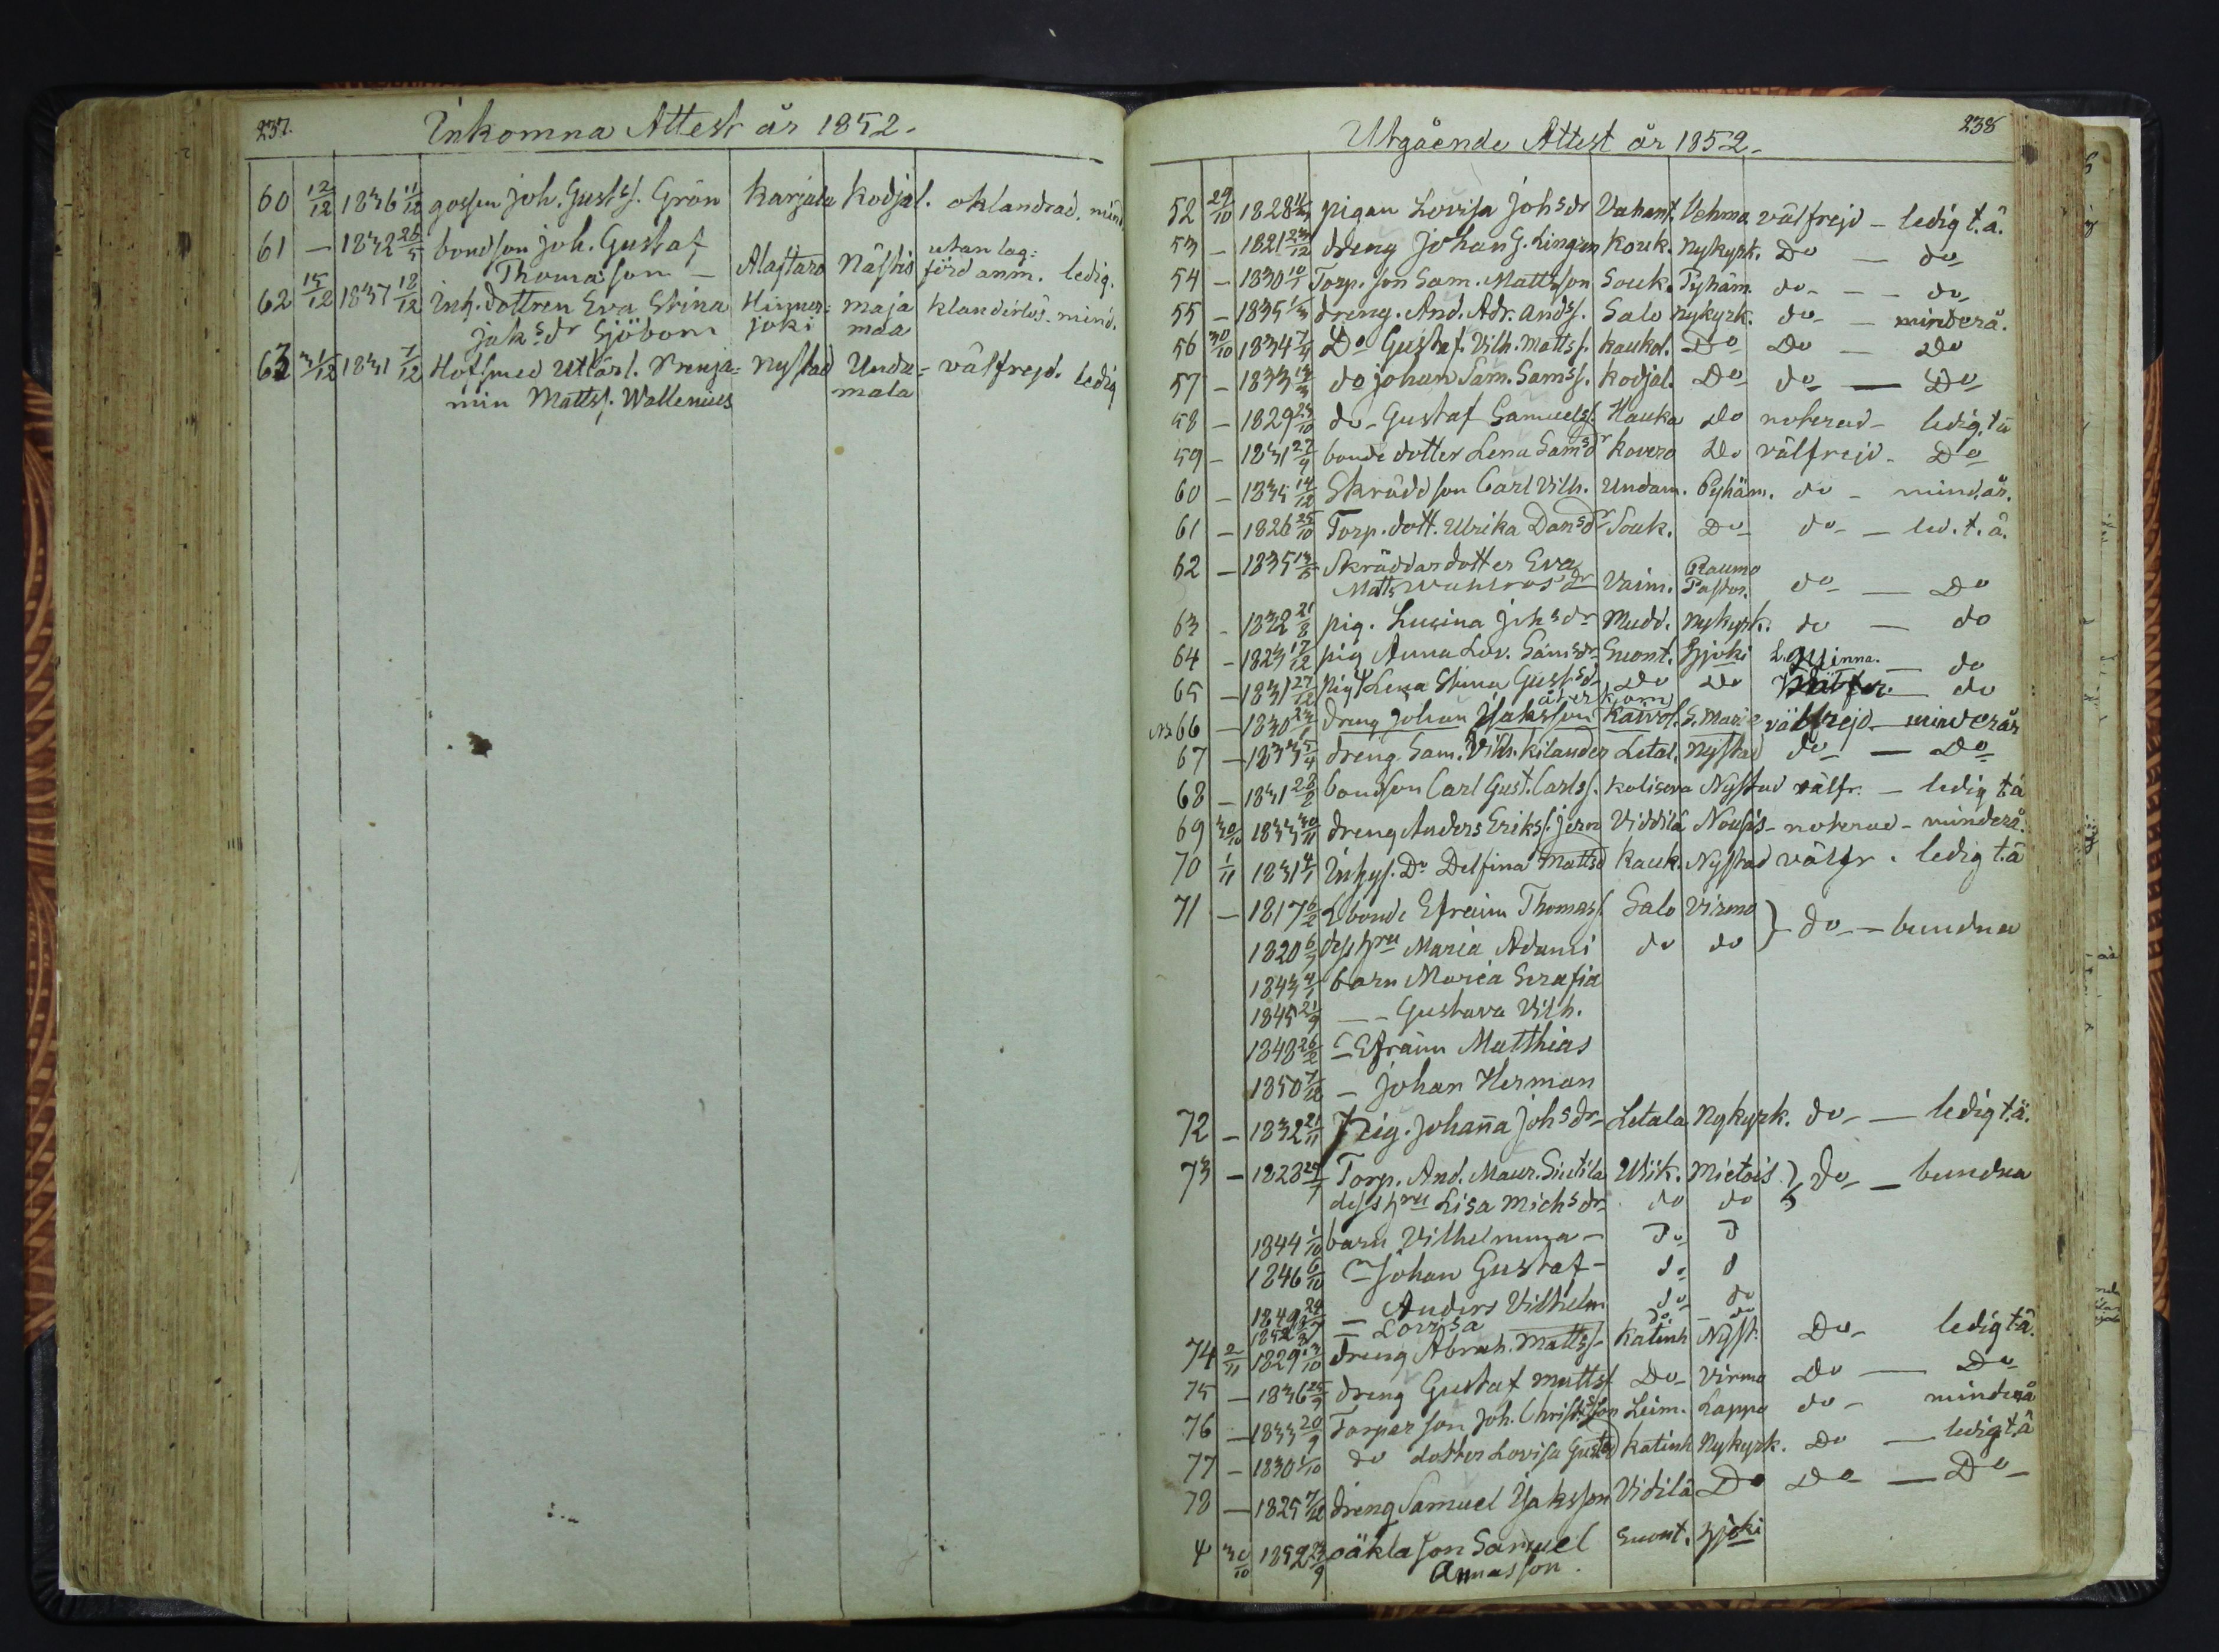 237.
Inkomna Attest år 1852.
60 12/12 1836 11/12 gossen Joh. Gustss. Grön Karjala Kodjal. oklandrad. mind.
61 — 1832 26/5 bondson Joh. Gustaf
Thomasson — Alastaro Nästis utan lag-
förd anm. ledig.
62 15/12 1837 18/12 Inh. dottren Eva Stina Hinner- maja klanderlös. mind.
Jak s. dr Sjöbom joki maa
63 31/12 1831 7/12 Hofsmed Utlärl. Benja- Nystad Unda- välfrejd. ledig
min Mattss. Wallenius mala
238
Utgående Attest år 1852.
52 29/10 1828 pigan Lovisa Johsdr Vahant. Vehma välfrejd — ledig t. å.
53 — 1821 23/12 dreng Johan G. Kouk. Nykyrk. Do — do
54 — 1830 Torp. son Sam. Mattsson Souk. Pyhäm. do — do
55 — 1835 dreng. And. Adr. Andss. Salo Nykyrk. do — minderå.
56 30/10 1834 Do Gustaf Vilh. Mattss. Kaukol. Do Do — Do
57 — 1833 do Johan Sam. Samss. Kodjal. Do do — Do
58 — 1829 23/10 do Gustaf Samuelss. Hauka Do noterad — ledig t. å
59 — 1831 bonde dotter Lena Samsdr Kovero Do välfrejd — Do
60 — 1835 14/12 Skrädd son Carl Vilh. Undam. Pyhäm. do — mind. år.
61 — 1826 25/10 Torp. dott. Ulrika Dansdr Souk. Do do — led. t. å.
62 — 1835 Skräddar dotter Eva Raumo
Matts dr Vaim. Pastor. do — Do
63 — 1832 21/8 pig. Lusina Johsdr Mudd. Nykyrk. do — do
64 — 1823 17/12 pig Anna Lov. Samsdr Suont. Hjoki L. Qvinna. — do
65 — 1831 27/12 pig Lena Stina Gustsdr Do Do — do
återkom
66 — 1830 dreng Johan Isaksson S. Marie välfrejd — minderår
67 — 1835 dreng Sam. Vilh. Kilander Letal. Nystad do — Do
68 — 1831 28/2 bondson Carl Gust. Carlss. Kolisera Nystad välfr. — ledig t. å
69 30/10 1833 30/11 dreng Anders Erikss. Jern Viddilä Nousis — noterad — minderå.
70 1/11 1831 Inhys. Do Delfina Mattsd Kauk. Nystad välfr. ledig t. å
71 — 1817 6/2 L bonde Efraim Thomass. Salo Virmo } do — bundna
1820 dess hru Maria Adami do do
1843 barn Maria Serafia
1845 21/9 — Gustava Vilh.
1848 26/2 — Efraim Matthias
1850 7/12 — Johan Herman
72 — 1832 21/11 Pig. Johanna Johsdr Letala Nykyrk. do — ledig t. å.
73 — 1828 Torp. And. Maur. Sintila Wiik. Mietois } Do — bundna
dess hru Lisa Michsdr do do
1844 1/10 barn Vilhelmina — Do D
1846 6/10 — Johan Gustaf — do d
1849 — Anders Vilhelm do do
1852 — Lovisa do do
74 2/11 1829 dreng Abrah. Mattss. Katinh Nyst. Do ledig t. å.
75 — 1836 dreng Gustaf Mattss Do Virmo Do — Do
76 — 1833 20/9 Torpar son Joh. Christsson Leim. Lappo do — minderå
77 — 1830 1/10 do dotter Lovisa Gustsd Katinh Nykyrk. Do — ledig t. å
78 — 1825 7/12 dreng Samuel Isaksson Vidilä Do Do — Do
4 30/10 1852 23/9 oäkta son Samuel Suont. Hjoki
Annasson.